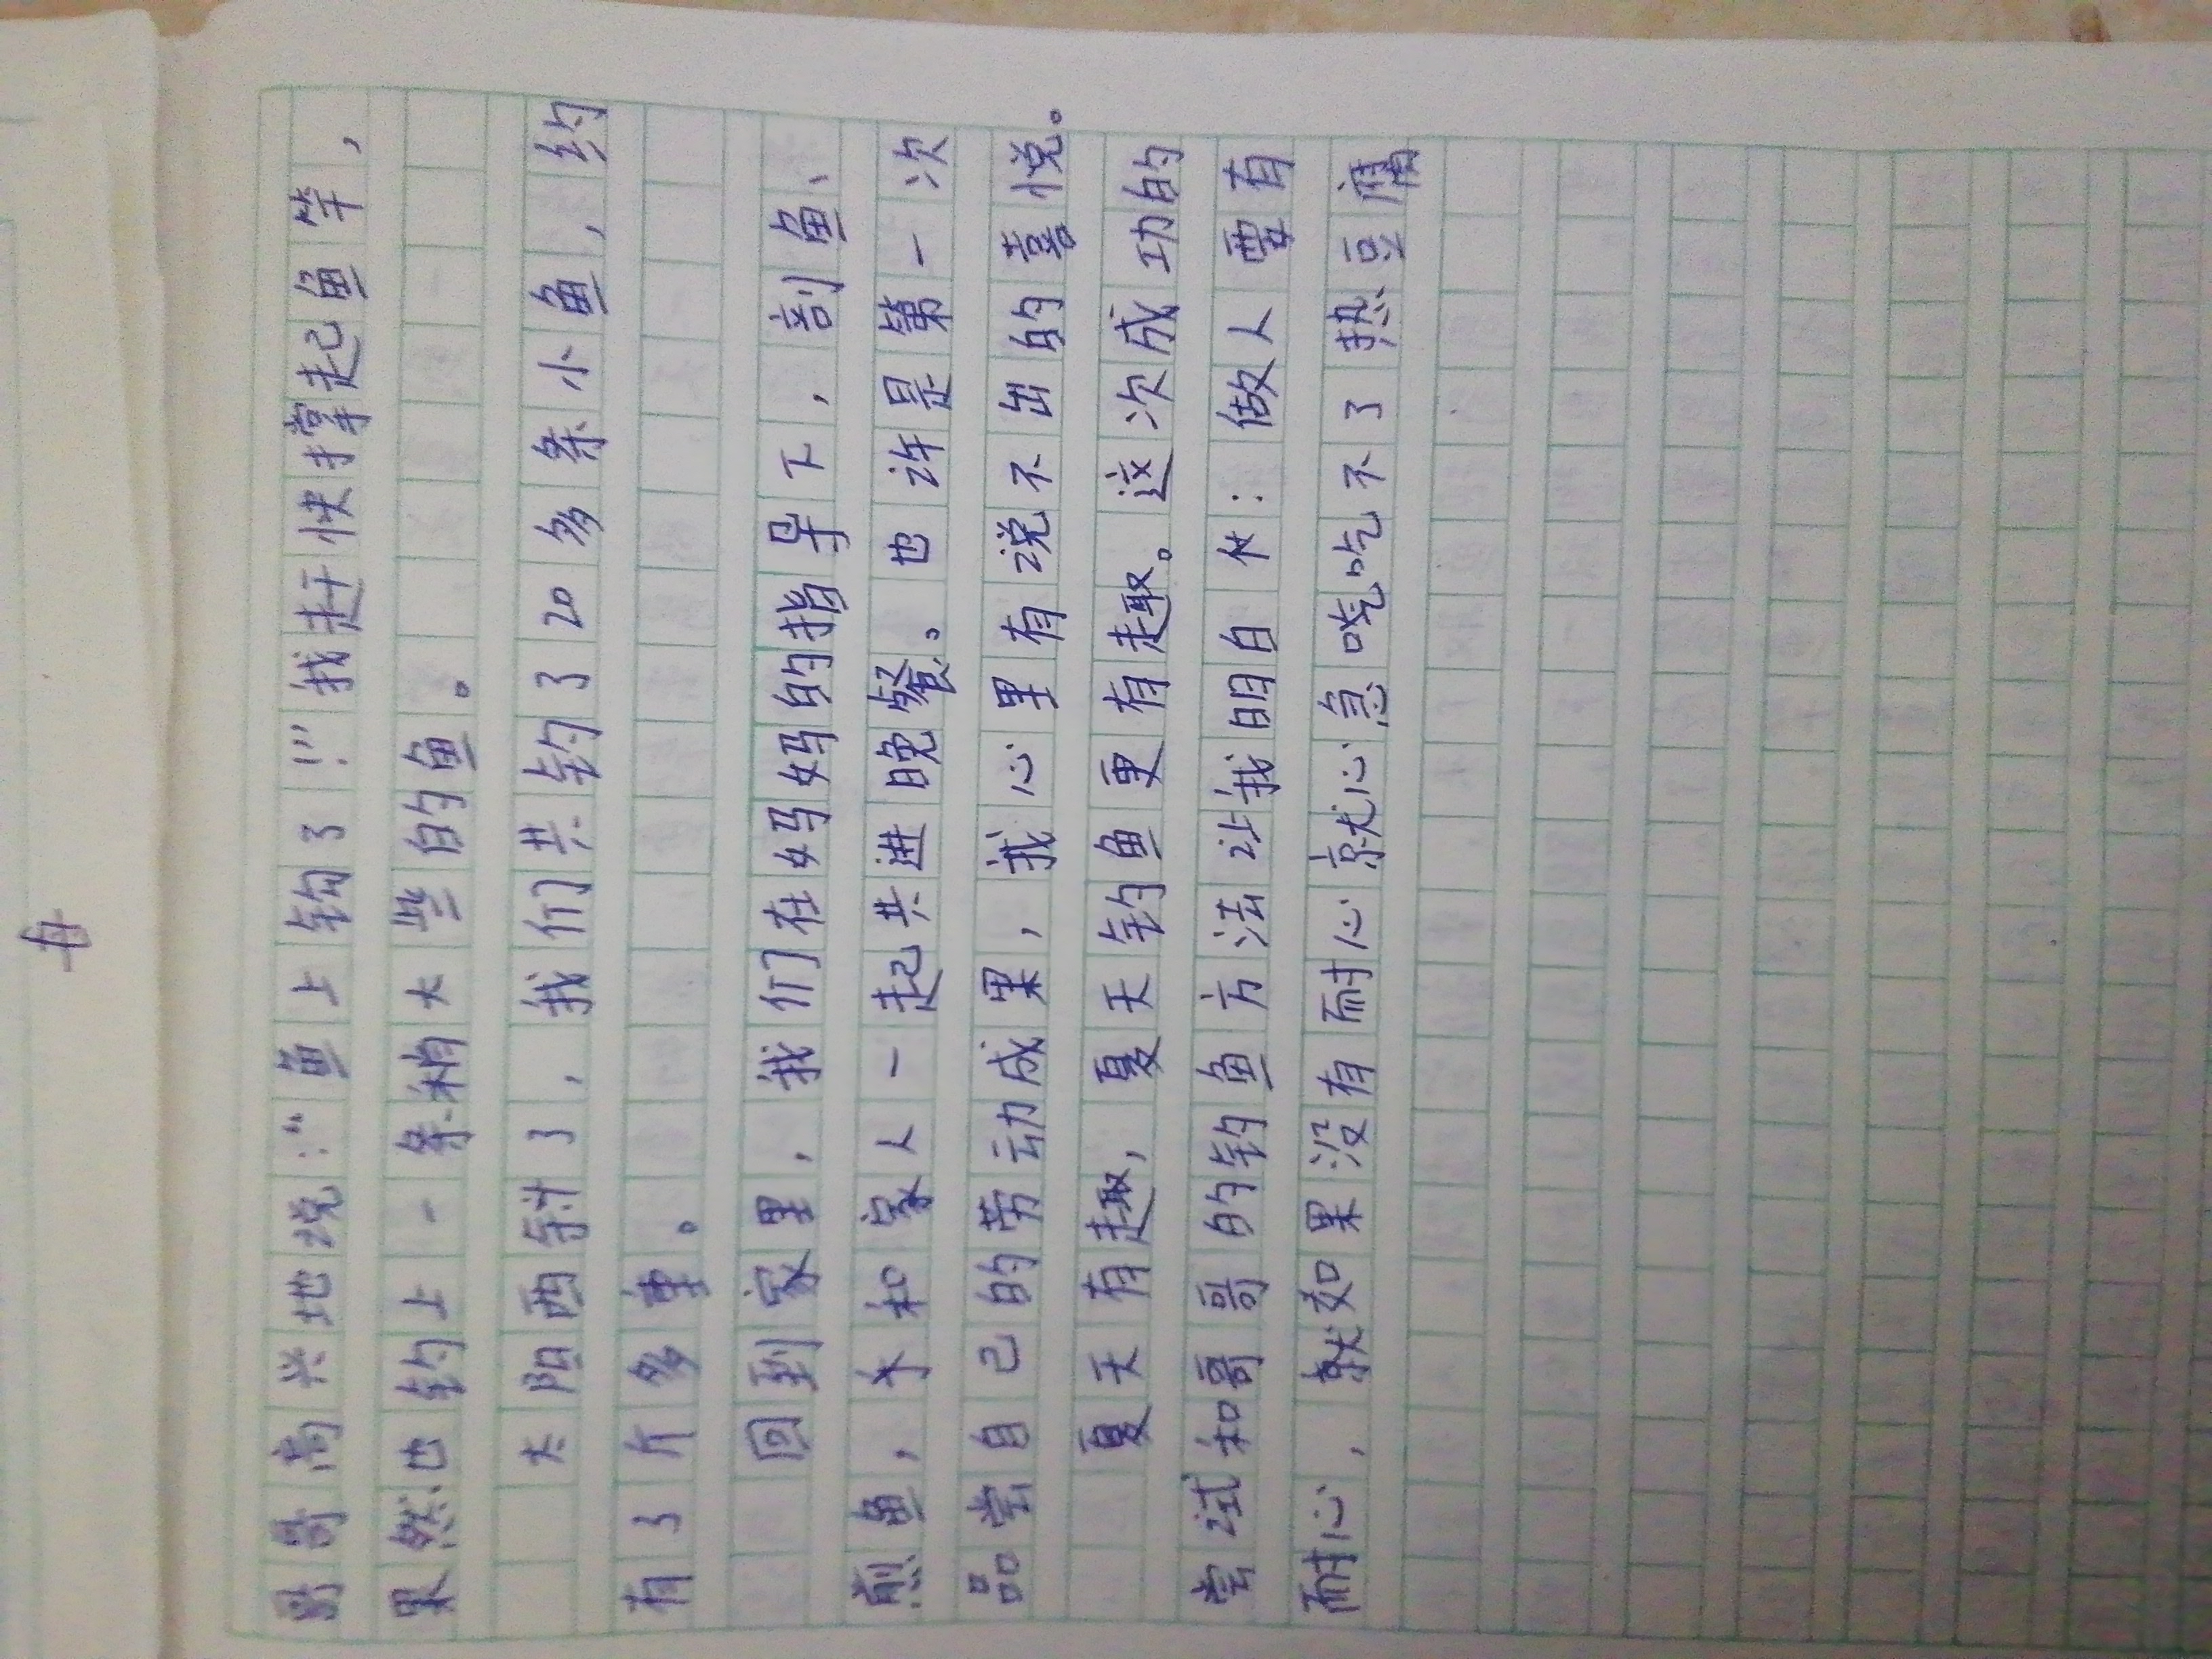 哥哥高兴地说:“鱼上钩了!”我赶快撑起鱼竿,
果然也钓上一条稍大些的鱼。
太阳西斜了,我们共钓了20多条小鱼,约
有3斤多重。
回到家里,我们在妈妈的指导下,剖鱼、
煎鱼,和家人一起共进晚餐。也许是第一次
品尝自己的劳动成果,我心里有说不出的喜悦。
夏天有趣,夏天钓鱼更有趣。这次成功的
尝试和哥哥的钓鱼方法让我明白:做人要有
耐心,就如果没有耐心就心急吃不了热豆腐